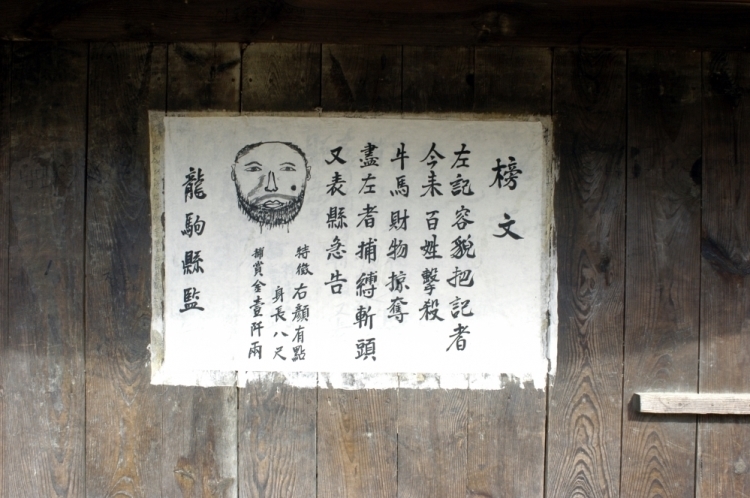 榜文
左記容貌把記者
今来百姓擊殺
牛馬財物掠奪
盡左者捕縛斬頭
又表縣急告
特徵右顔有點
身長八尺
賞金壹阡兩
龍駒縣監